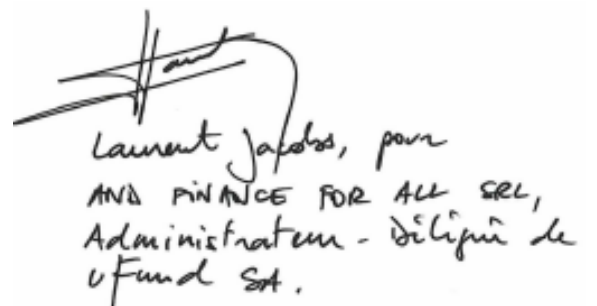 Laurent Jacobs, pour
AND FINANCE FOR ALL SRL,
Administrateur - Délégué de
uFund SA.